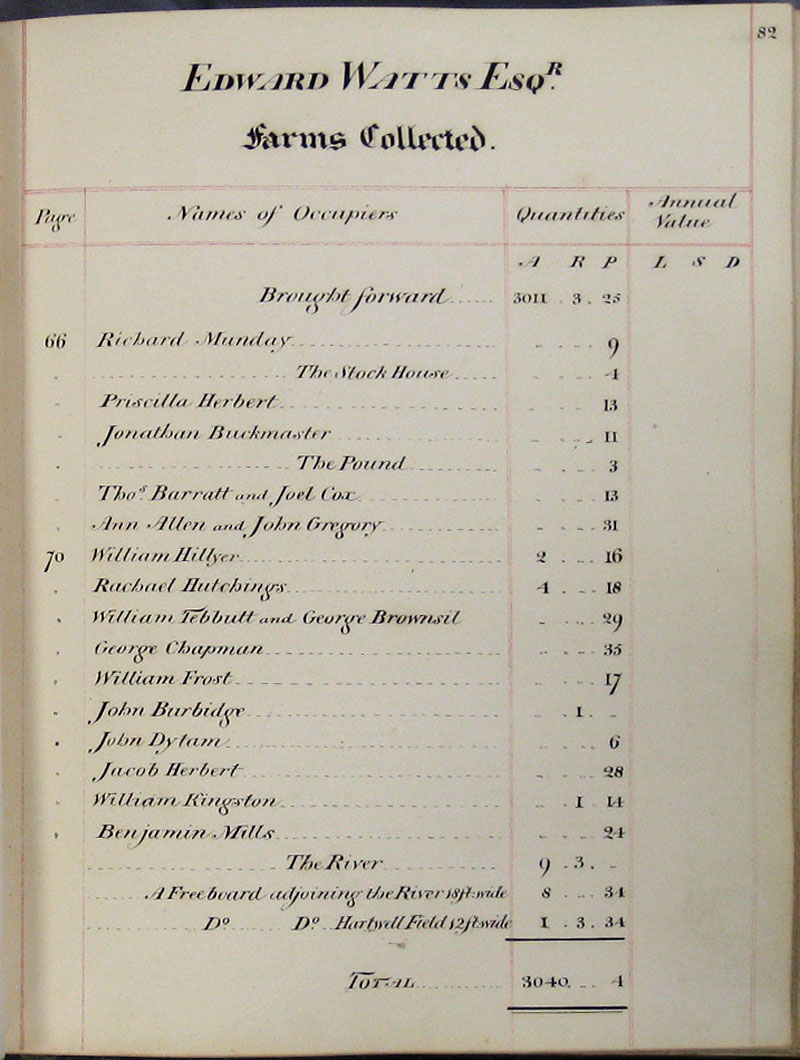 82
EDWARD WATTS ESQR.
Farms Collected.
Page Names of Occupiers Quantities Annual Value
A R P L S D
Brought forward 3011 . 3 . 25
66 Richard Munday 9
The Stock House 4
Priscilla Herbert 13
Jonathan Buckmaster 11
The Pound 3
Thos. Barratt and Joel Cox 13
Ann Allen and John Gregory 31
70 William Hillyer 2 16
Rachael Hutchings 4 18
William Tebbutt and George Brownsil 29
George Chapman 35
William Frost 17
John Burbidge 1
John Dytam 6
Jacob Herbert 28
William Kingston 1 14
Benjamin Mills 24
The River 9 . 3 .
A Freeboard adjoining the River 18ft. wide 8 34
Do. Do. Hartwell Field 12ft. wide 1 . 3 . 34
TOTAL 3040 4